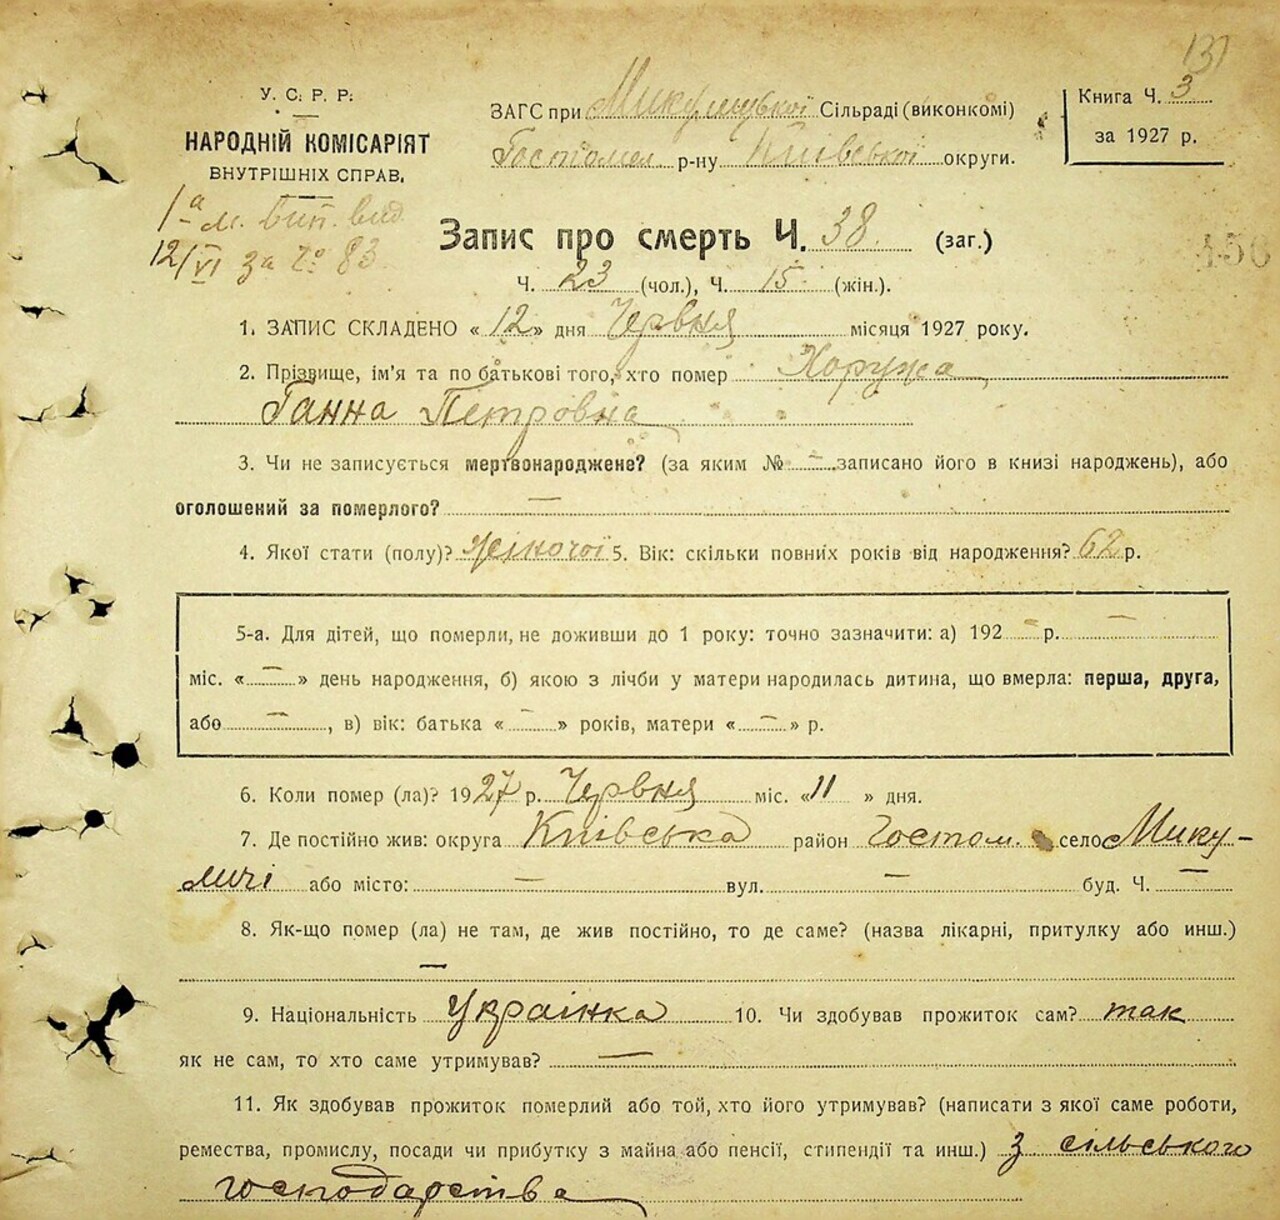 137
У. С. Р. Р.
НАРОДНІЙ КОМІСАРІЯТ
ВНУТРІШНІХ СПРАВ.
1-а м. вип. вид.
12/VI за № 83
ЗАГС при Микулицької Сільраді (виконкомі)
Гостомел р-ну Київської округи.
Книга Ч. 3
за 1927 р.
Запис про смерть Ч. 38. (заг.)
456
Ч. 23 (чол.), Ч. 15 (жін.).
1. ЗАПИС СКЛАДЕНО «12» дня Червня місяця 1927 року.
2. Прізвище, ім'я та по батькові того, хто помер Хоружа
Ганна Петровна
3. Чи не записується мертвонароджене? (за яким № – записано його в книзі народжень), або
оголошений за померлого? —
4. Якої стати (полу)? жіночої 5. Вік: скільки повних років від народження? 62 р.
5-а. Для дітей, що померли, не доживши до 1 року: точно зазначити: а) 192 – р. –
міс. « – » день народження, б) якою з лічби у матери народилась дитина, що вмерла: перша, друга,
або – , в) вік: батька « – » років, матери « – » р.
6. Коли помер (ла)? 1927 р. Червня міс. «11» дня.
7. Де постійно жив: округа Київська район Гостом. село Мику-
личі або місто: – вул. – буд. Ч. –
8. Як-що помер (ла) не там, де жив постійно, то де саме? (назва лікарні, притулку або инш.)
—
9. Національність Українка 10. Чи здобував прожиток сам? так
як не сам, то хто саме утримував? —
11. Як здобував прожиток померлий або той, хто його утримував? (написати з якої саме роботи,
ремества, промислу, посади чи прибутку з майна або пенсії, стипендії та инш.) З сільського
господарства